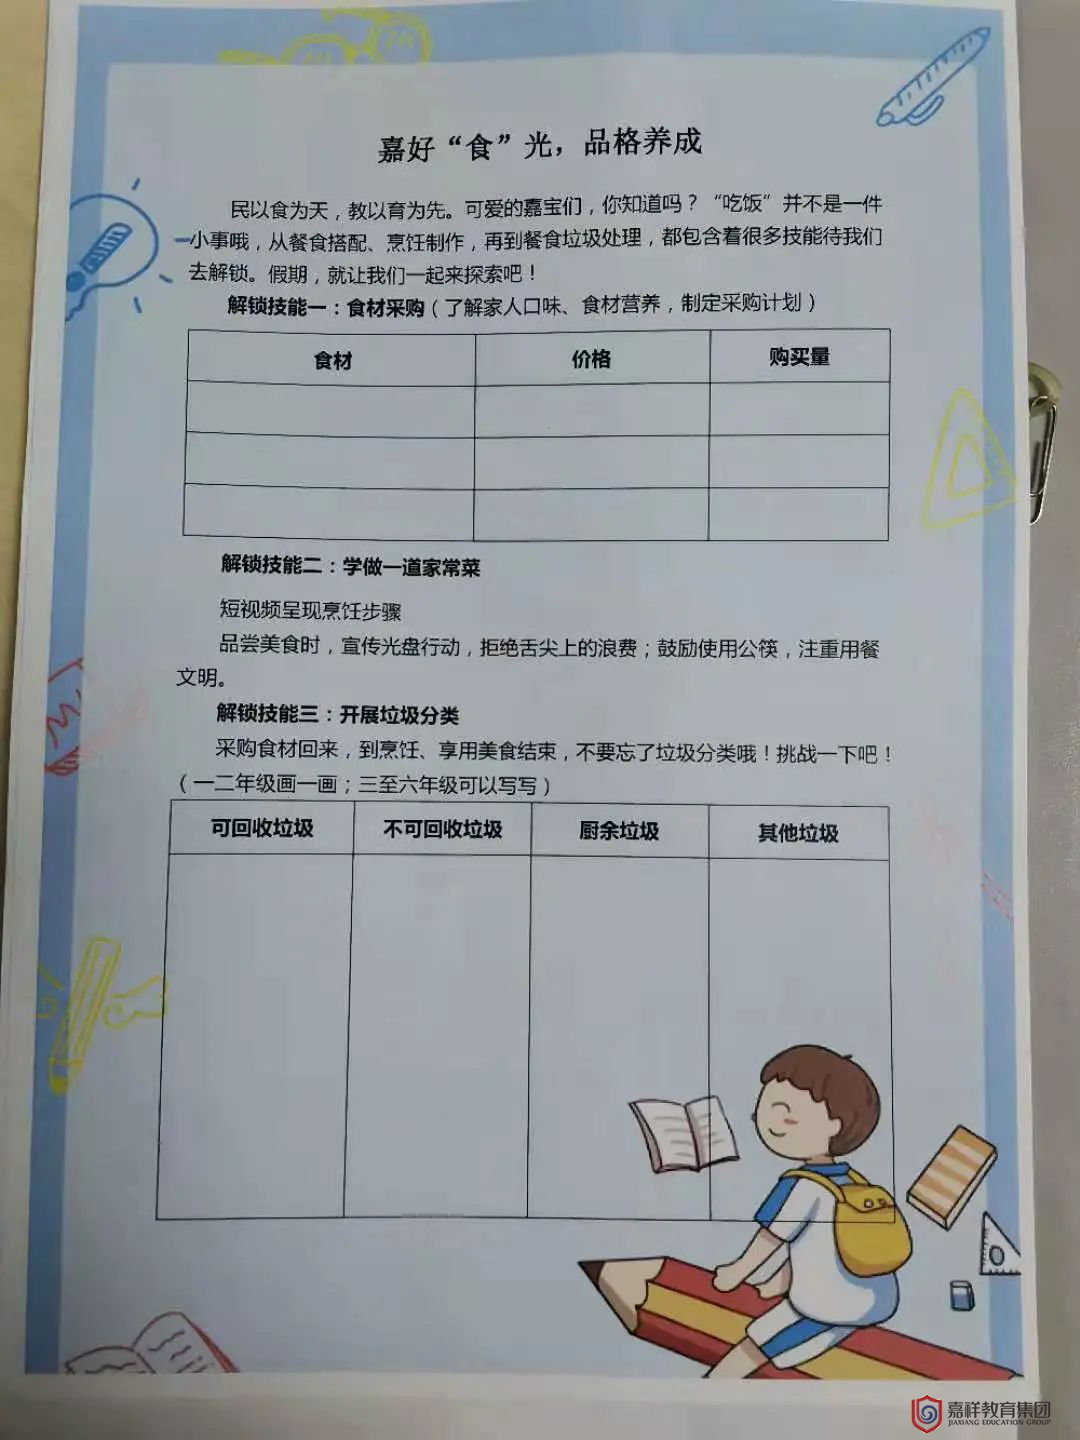 嘉好“食”光，品格养成
民以食为天，教以育为先。可爱的嘉宝们，你知道吗？“吃饭”并不是一件
小事哦，从餐食搭配、烹饪制作，再到餐食垃圾处理，都包含着很多技能待我们
去解锁。假期，就让我们一起来探索吧！
解锁技能一：食材采购（了解家人口味、食材营养，制定采购计划）
食材 价格 购买量
解锁技能二：学做一道家常菜
短视频呈现烹饪步骤
品尝美食时，宣传光盘行动，拒绝舌尖上的浪费；鼓励使用公筷，注重用餐
文明。
解锁技能三：开展垃圾分类
采购食材回来，到烹饪、享用美食结束，不要忘了垃圾分类哦！挑战一下吧！
（一二年级画一画；三至六年级可以写写）
可回收垃圾 不可回收垃圾 厨余垃圾 其他垃圾
嘉祥教育集团
JIAXIANG EDUCATION GROUP